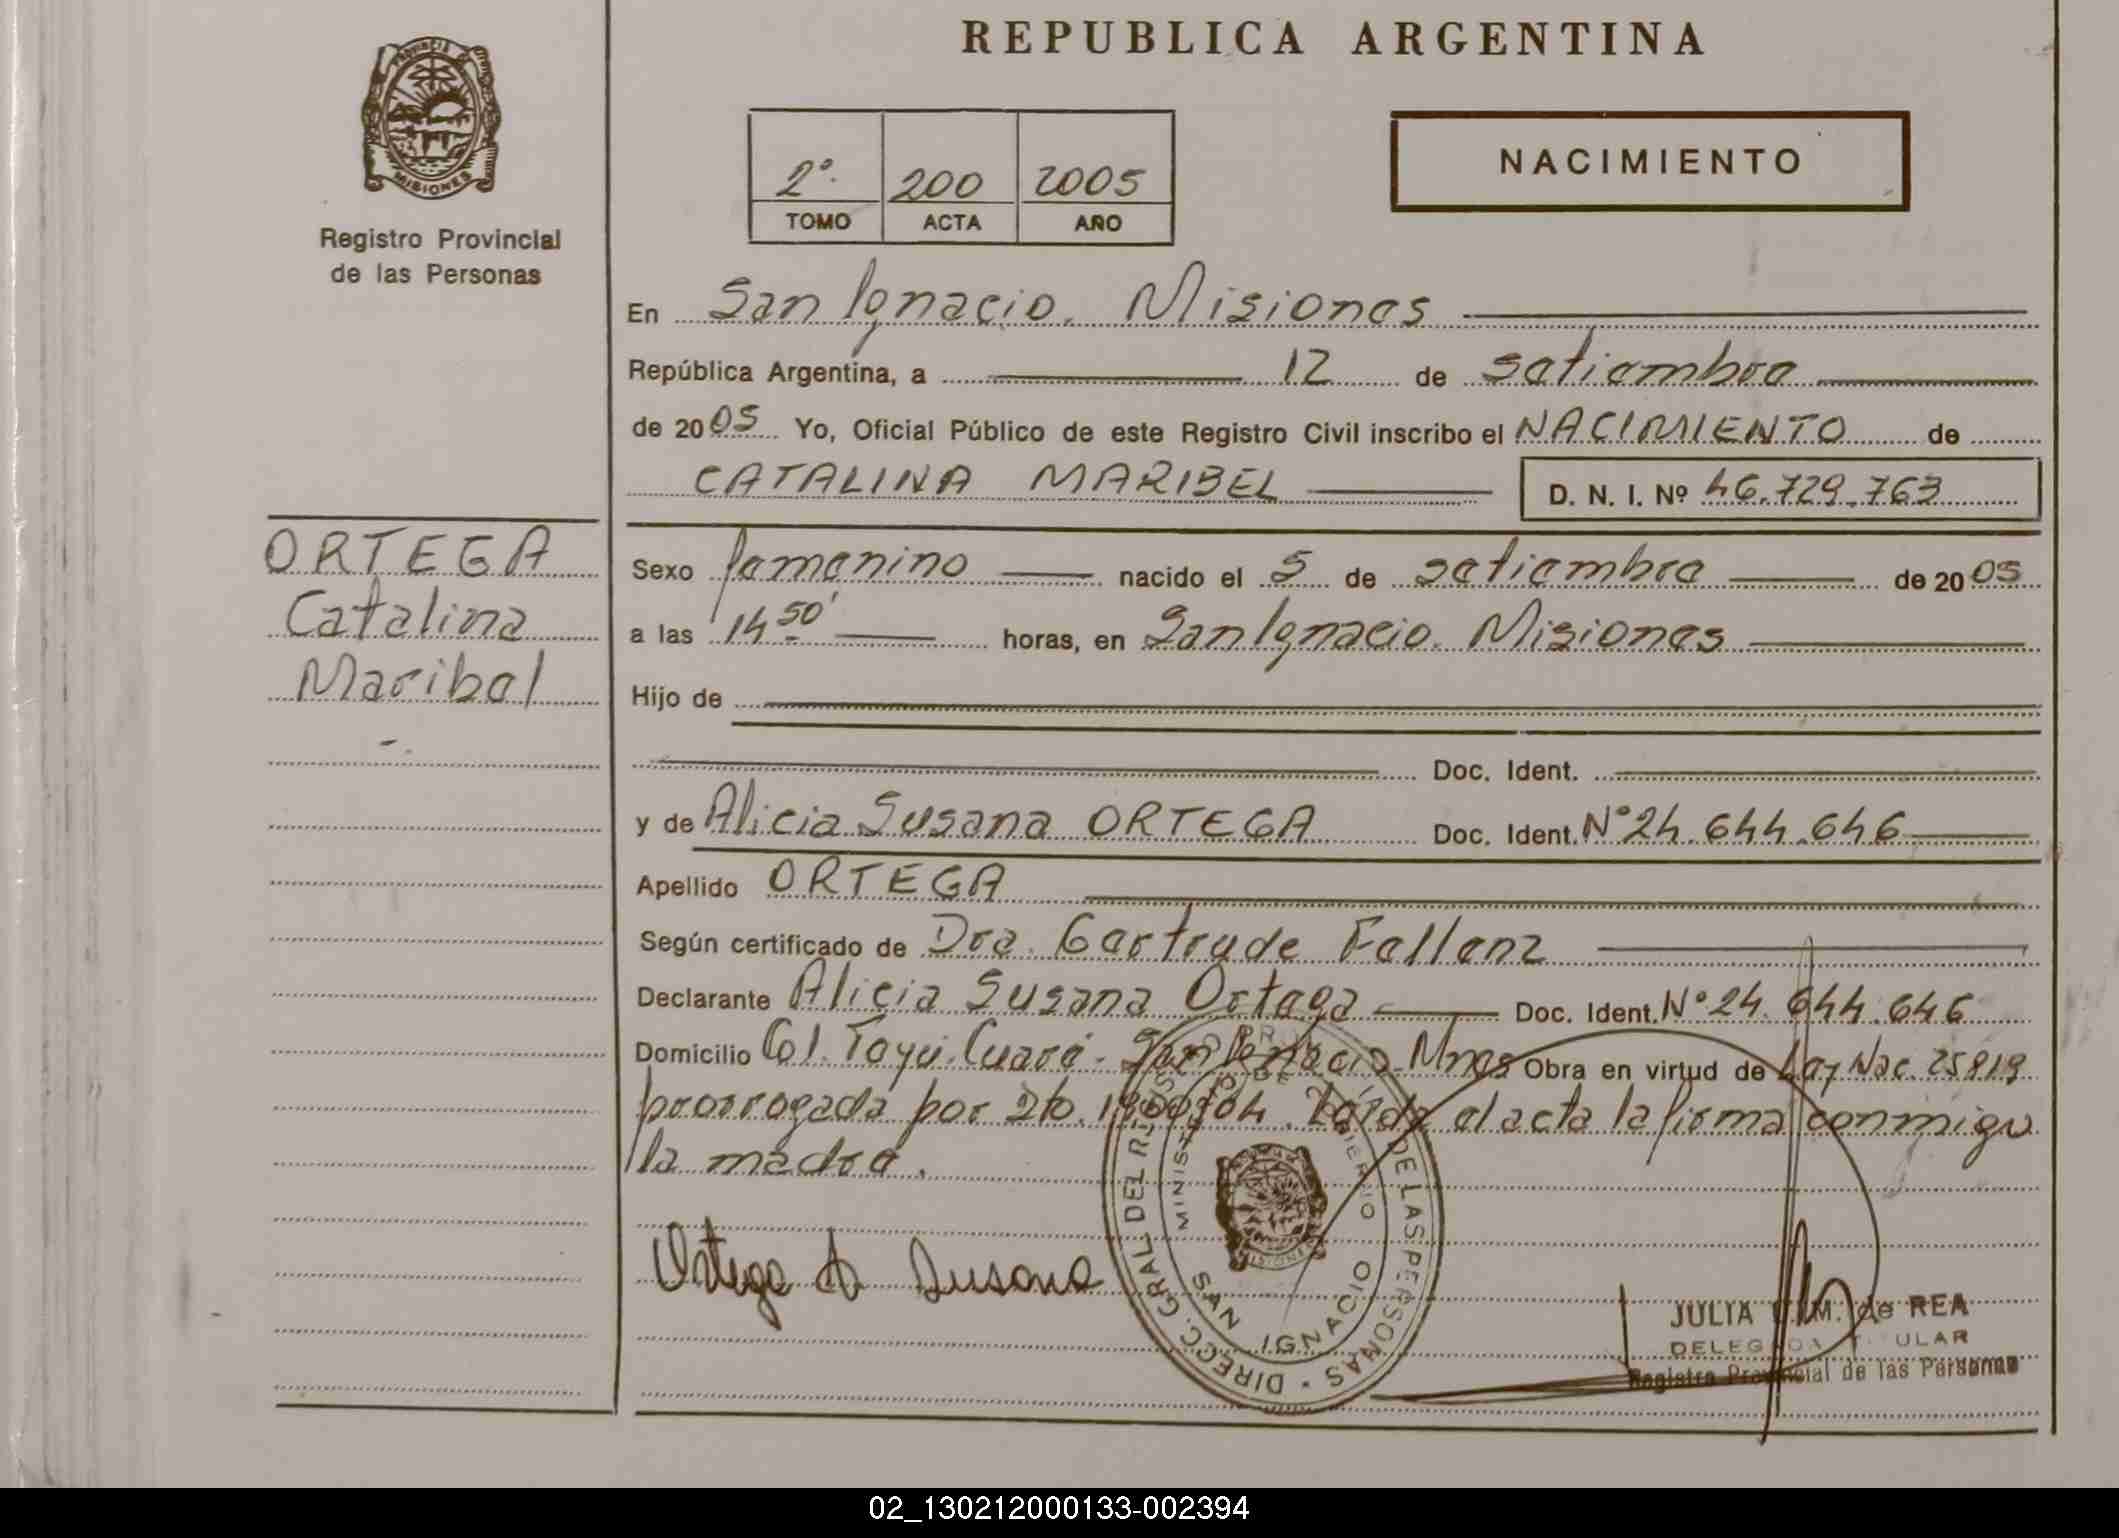 REPUBLICA ARGENTINA
PROVINCIA DE
MISIONES
Registro Provincial
de las Personas
2º. 200 2005
TOMO ACTA AÑO
NACIMIENTO
En San Ignacio. Misiones
República Argentina, a 12 de setiembre
de 2005 Yo, Oficial Público de este Registro Civil inscribo el NACIMIENTO de
CATALINA MARIBEL D. N. I. Nº 46.729.763
ORTEGA
Catalina
Maribel
Sexo femenino nacido el 5 de setiembre de 2005
a las 14 50' horas, en San Ignacio. Misiones
Hijo de
Doc. Ident.
y de Alicia Susana ORTEGA Doc. Ident. Nº 24.644.646
Apellido ORTEGA
Según certificado de Dra. Gertrude Fellenz
Declarante Alicia Susana Ortega Doc. Ident. Nº 24.644.646
Domicilio Col. Teyú Cuaré - San Ignacio - Mnes Obra en virtud de Ley Nac. 25819
prorrogada por Dto. Leída el acta la firma conmigo
la madre.
Ortega A Susana
DIRECC. GRAL. DEL DE LAS PERSONAS
MINISTERIO DE GOBIERNO
SAN IGNACIO
MISIONES
JULIA M. de REA
Registro Provincial de las Personas
02_130212000133-002394